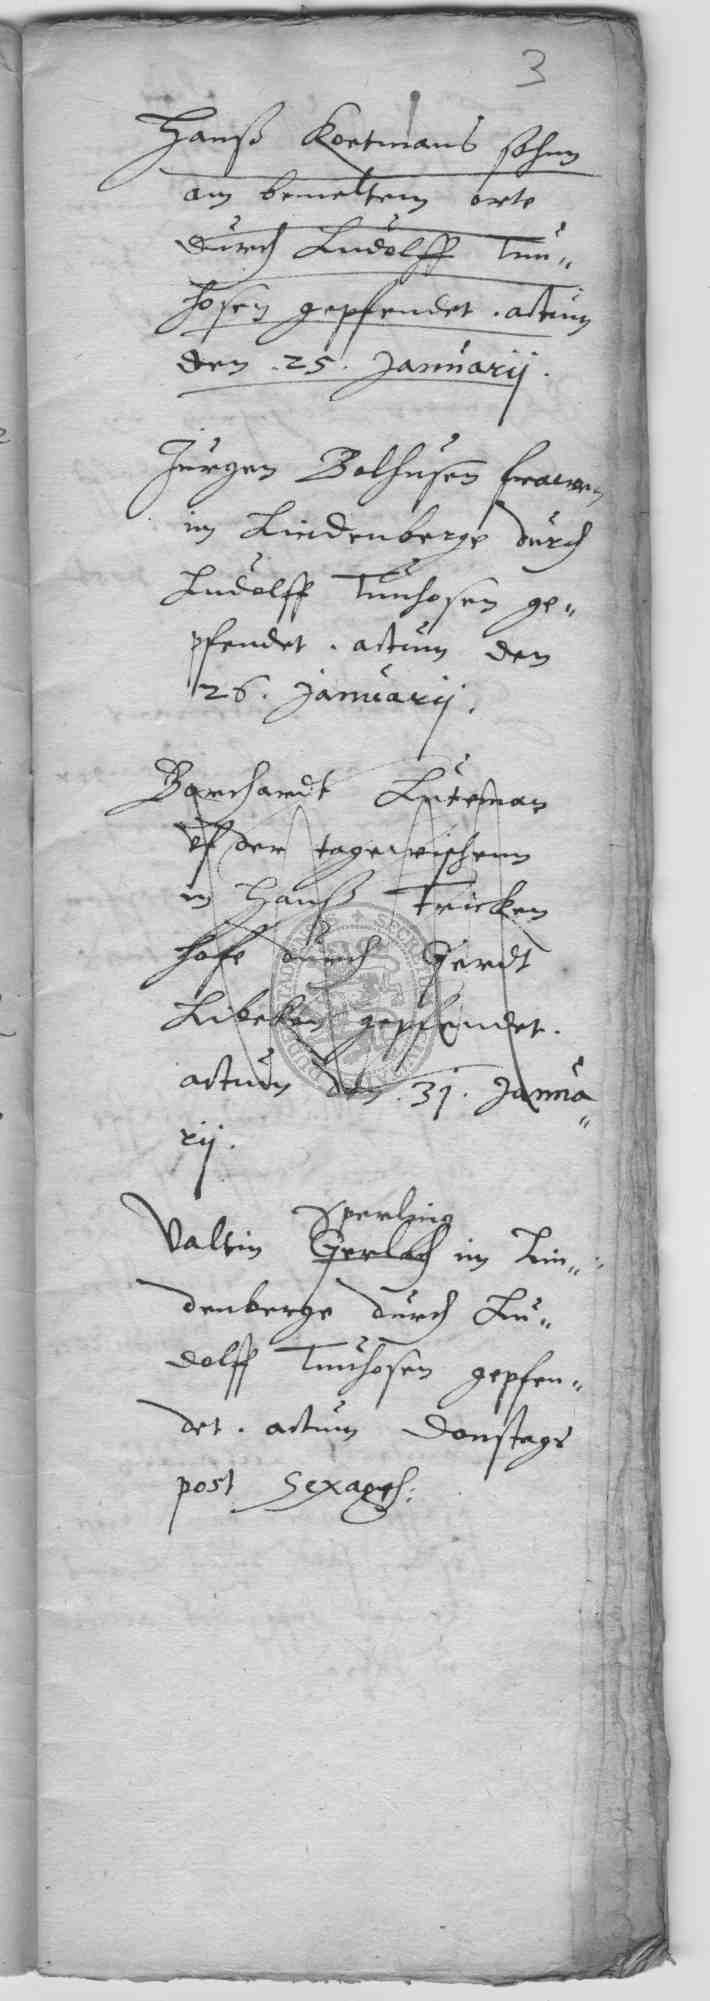 3
Hanß Koetmans sohnn
am bemeltem orte
durch Ludolff Tun„
hosen gepfendet . actum
den . 25 . Januarij .
Jürgen Bolhusen frawen
im Lindenberge durch
Ludolff Tunhosen ge„
pfendet . actum den
26 . Januarij .
Borchardt Luteman
vf der tagewischenn
in Hanß Fricken
hofe durch Gerdt
Libeken gepfendet .
actum den . 31 . Janua„
rij .
Sperling
Valtin Gerlach im Lin„
denberge durch Lu„
dolff Tunhosen gepfen„
det . actum Donstags
post Sexages: